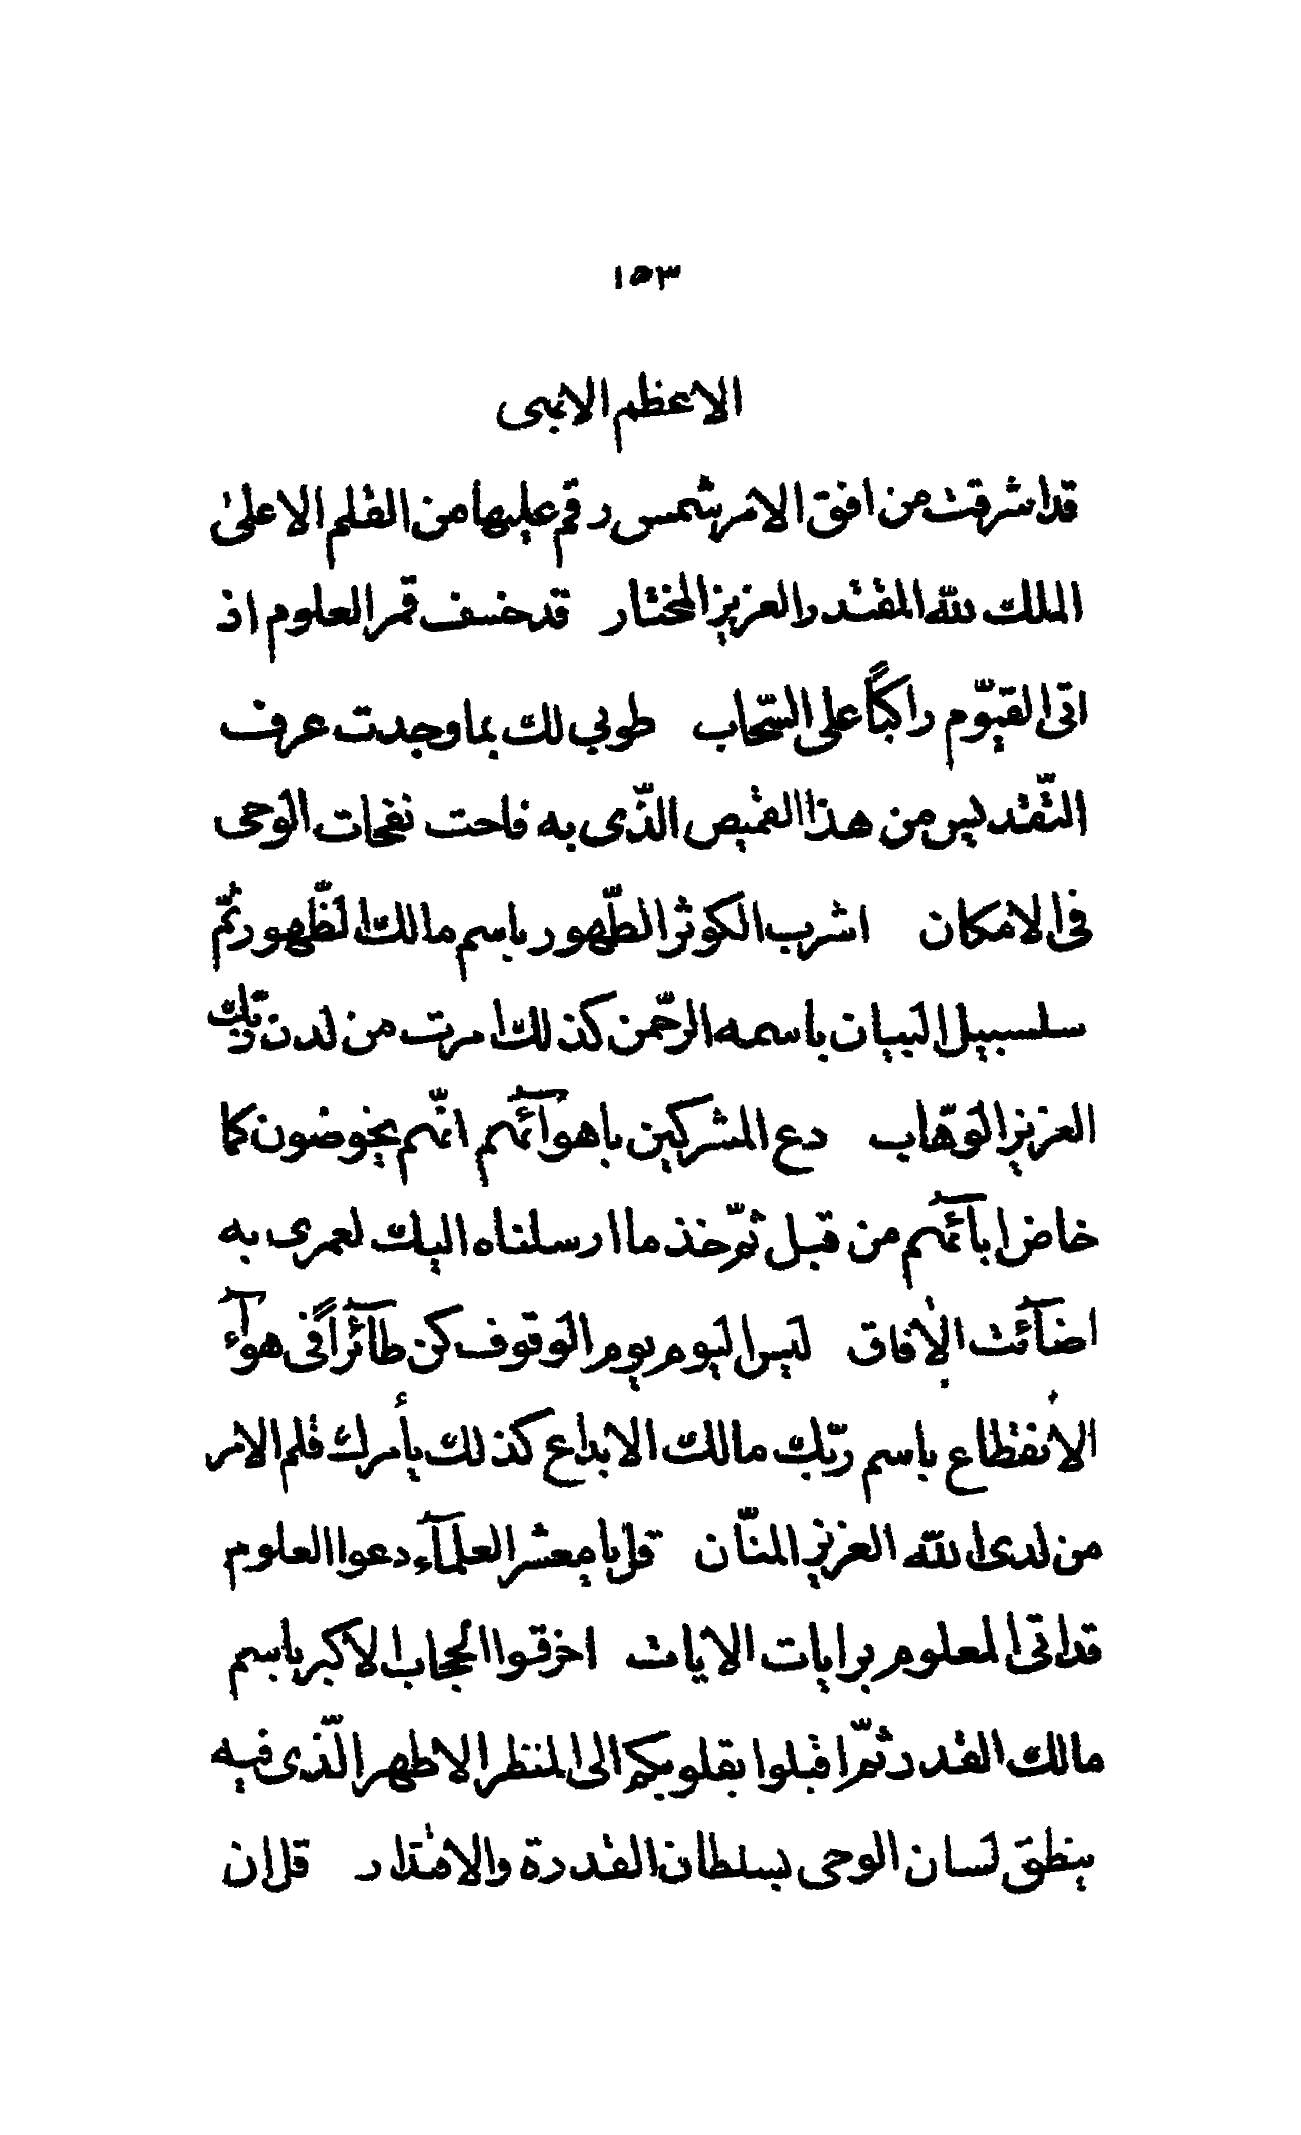 ١٥٣
الاعظم الابهى
قد اشرقت من افق الامر شمس رقم عليها من القلم الاعلىٰ
الملك لله المقتدر العزيز المختار قد خسف قمر العلوم اذ
اتى القيّوم راكبًا على السّحاب طوبى لك بما وجدت عرف
التّقديس من هذا القميص الذّى به فاحت نفحات الوحى
فى الامكان اشرب الكوثر الطّهور باسم مالك الظّهور ثمّ
سلسبيل البيان باسمه الرّحمن كذلك امرت من لدن ربّك
العزيز الوهّاب دع المشركين باهوآئهم انّهم يخوضون كما
خاض ابآئهم من قبل ثمّ خذ ما ارسلناه اليك لعمرى به
اضآئت الافاق ليس اليوم يوم الوقوف كن طآئرًا فى هوآء
الانقطاع باسم ربّك مالك الابداع كذلك يأمرك قلم الامر
من لدى الله العزيز المنّان قل يا معشر العلمآء دعوا العلوم
قد اتى المعلوم برايات الايات اخرقوا الحجاب الاكبر باسم
مالك القدر ثمّ اقبلوا بقلوبكم الى المنظر الاطهر الذّى فيه
ينطق لسان الوحى بسلطان القدرة والاقتدار قل ان